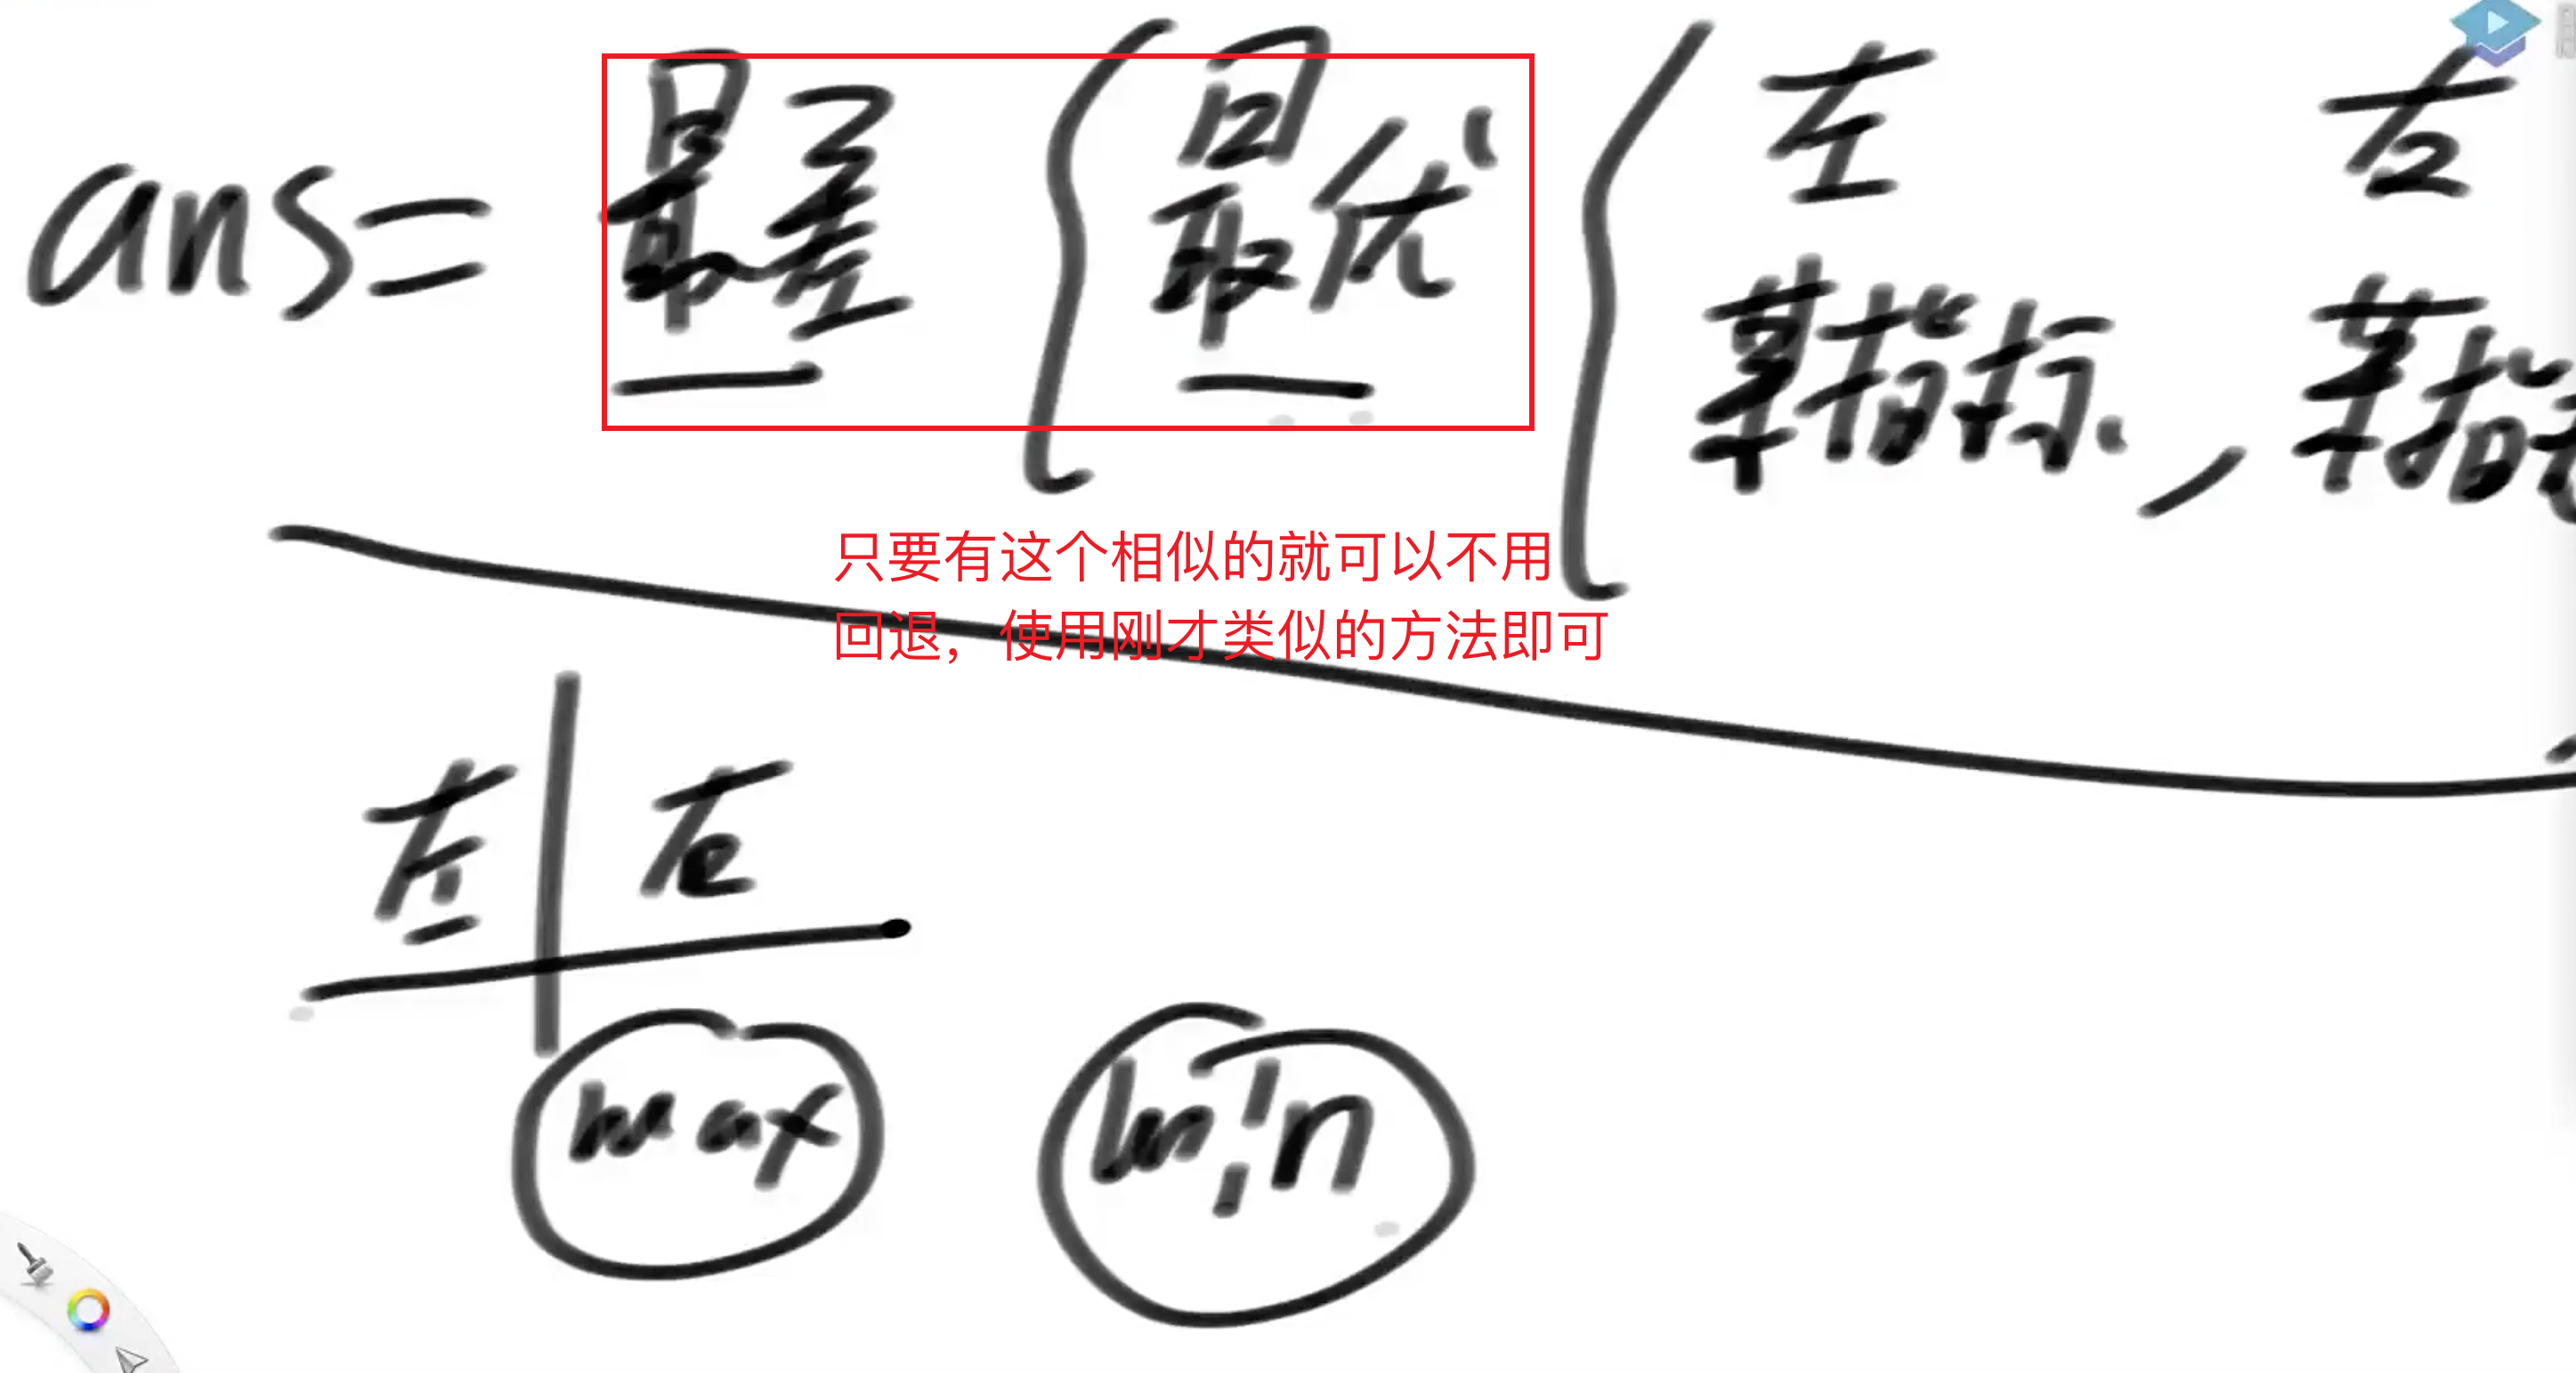 ans= 最差 { 最优 { 左 右
某指标, 某指
只要有这个相似的就可以不用
回退，使用刚才类似的方法即可
左 右
max min